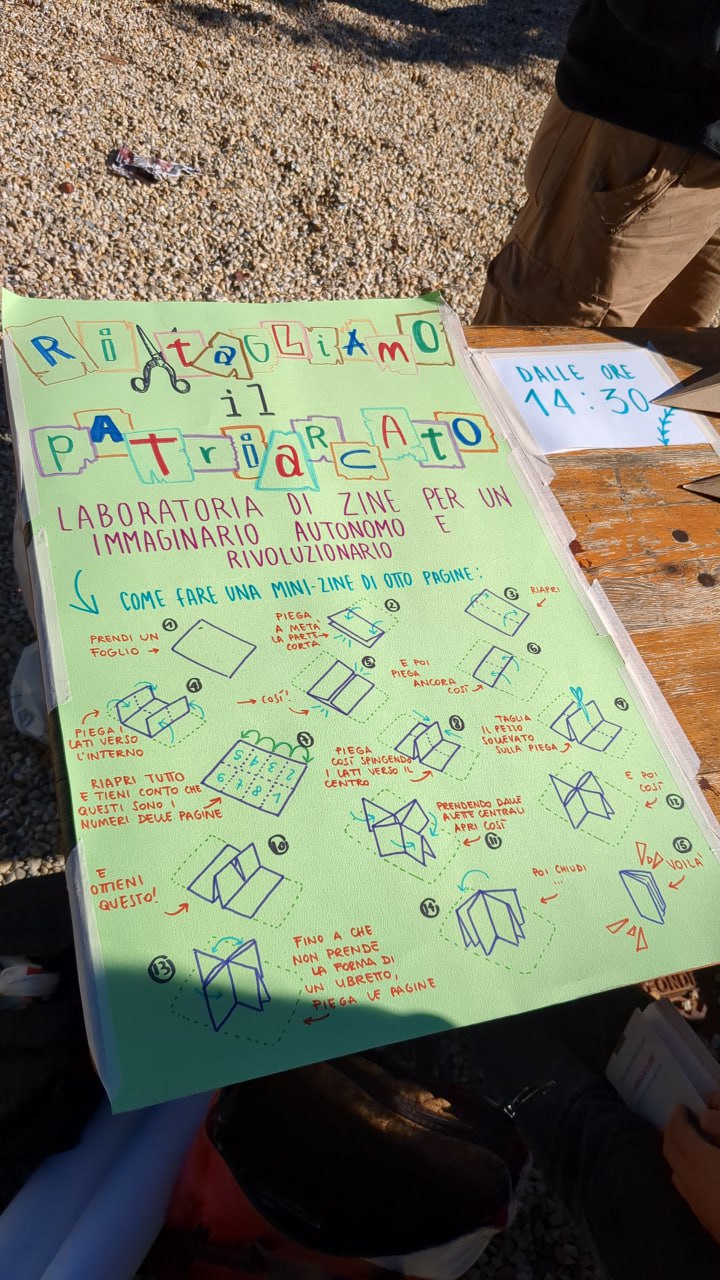 RiTAGLiAMO
il
PATriaRCAtO
DALLE ORE
14:30
LABORATORIA DI ZINE PER UN
IMMAGINARIO AUTONOMO E
RIVOLUZIONARIO
COME FARE UNA MINI-ZINE DI OTTO PAGINE:
1
PRENDI UN
FOGLIO
2
PIEGA
A METÀ
LA PARTE
CORTA
3
RIAPRI
4
PIEGA I
LATI VERSO
L'INTERNO
5
COSÌ!
6
E POI
PIEGA
ANCORA
COSÌ
7
RIAPRI TUTTO
E TIENI CONTO CHE
QUESTI SONO I
NUMERI DELLE PAGINE
2 3 4 5
1 8 7 6
8
PIEGA
COSÌ SPINGENDO
I LATI VERSO IL
CENTRO
9
TAGLIA
IL PEZZO
SOLLEVATO
SULLA PIEGA
10
E
OTTIENI
QUESTO!
11
PRENDENDO DALLE
ALETTE CENTRALI
APRI COSÌ
12
E POI
COSÌ
13
FINO A CHE
NON PRENDE
LA FORMA DI
UN LIBRETTO,
PIEGA LE PAGINE
14
POI CHIUDI
...
15
VOILÀ